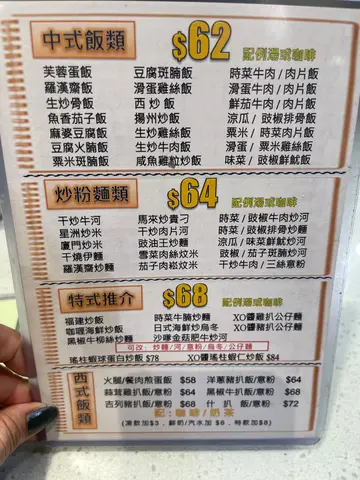 中式飯類 $62 配例湯或咖啡
芙蓉蛋飯 豆腐斑腩飯 時菜牛肉/肉片飯
羅漢齋飯 滑蛋雞絲飯 滑蛋牛肉/肉片飯
生炒骨飯 西炒飯 鮮茄牛肉/肉片飯
魚香茄子飯 揚州炒飯 涼瓜/豉椒排骨飯
麻婆豆腐飯 生炒雞絲飯 粟米/時菜肉片飯
豆腐火腩飯 生炒牛肉飯 粟米/豉椒斑腩飯
粟米斑腩飯 咸魚雞粒炒飯 味菜/豉椒鮮魷飯
炒粉麵類 $64 配例湯或咖啡
干炒牛河 馬來炒貴刁 時菜/豉椒牛肉炒河
星洲炒米 干炒肉片河 時菜/豉椒排骨炒麵
廈門炒米 豉油王炒麵 涼瓜/味菜鮮魷炒河
干燒伊麵 雪菜肉絲炆米 豉椒/茄子斑腩炒河
羅漢齋炒麵 茄子肉崧炆米 干炒牛肉/三絲意粉
特式推介 $68 配例湯或咖啡
福建炒飯 時菜牛腩炒麵 XO醬雞扒公仔麵
咖喱海鮮炒飯 日式海鮮炒烏冬 XO醬豬扒公仔麵
黑椒牛柳絲炒麵 沙嗲金菇肥牛炒河
可改:炒麵/河/意粉/烏冬/公仔麵
瑤柱蝦球蛋白炒飯 $78 XO醬瑤柱蝦仁炒飯 $84
西式飯類
火腿/餐肉煎蛋飯 $58 洋蔥豬扒飯/意粉 $64
蒜茸雞扒飯/意粉 $64 黑椒牛扒飯/意粉 $68
吉列豬扒飯/意粉 $68 什扒飯/意粉 $72
配:咖啡/奶茶
(凍飲加$3,鮮奶/汽水加 $6,特飲加$8)